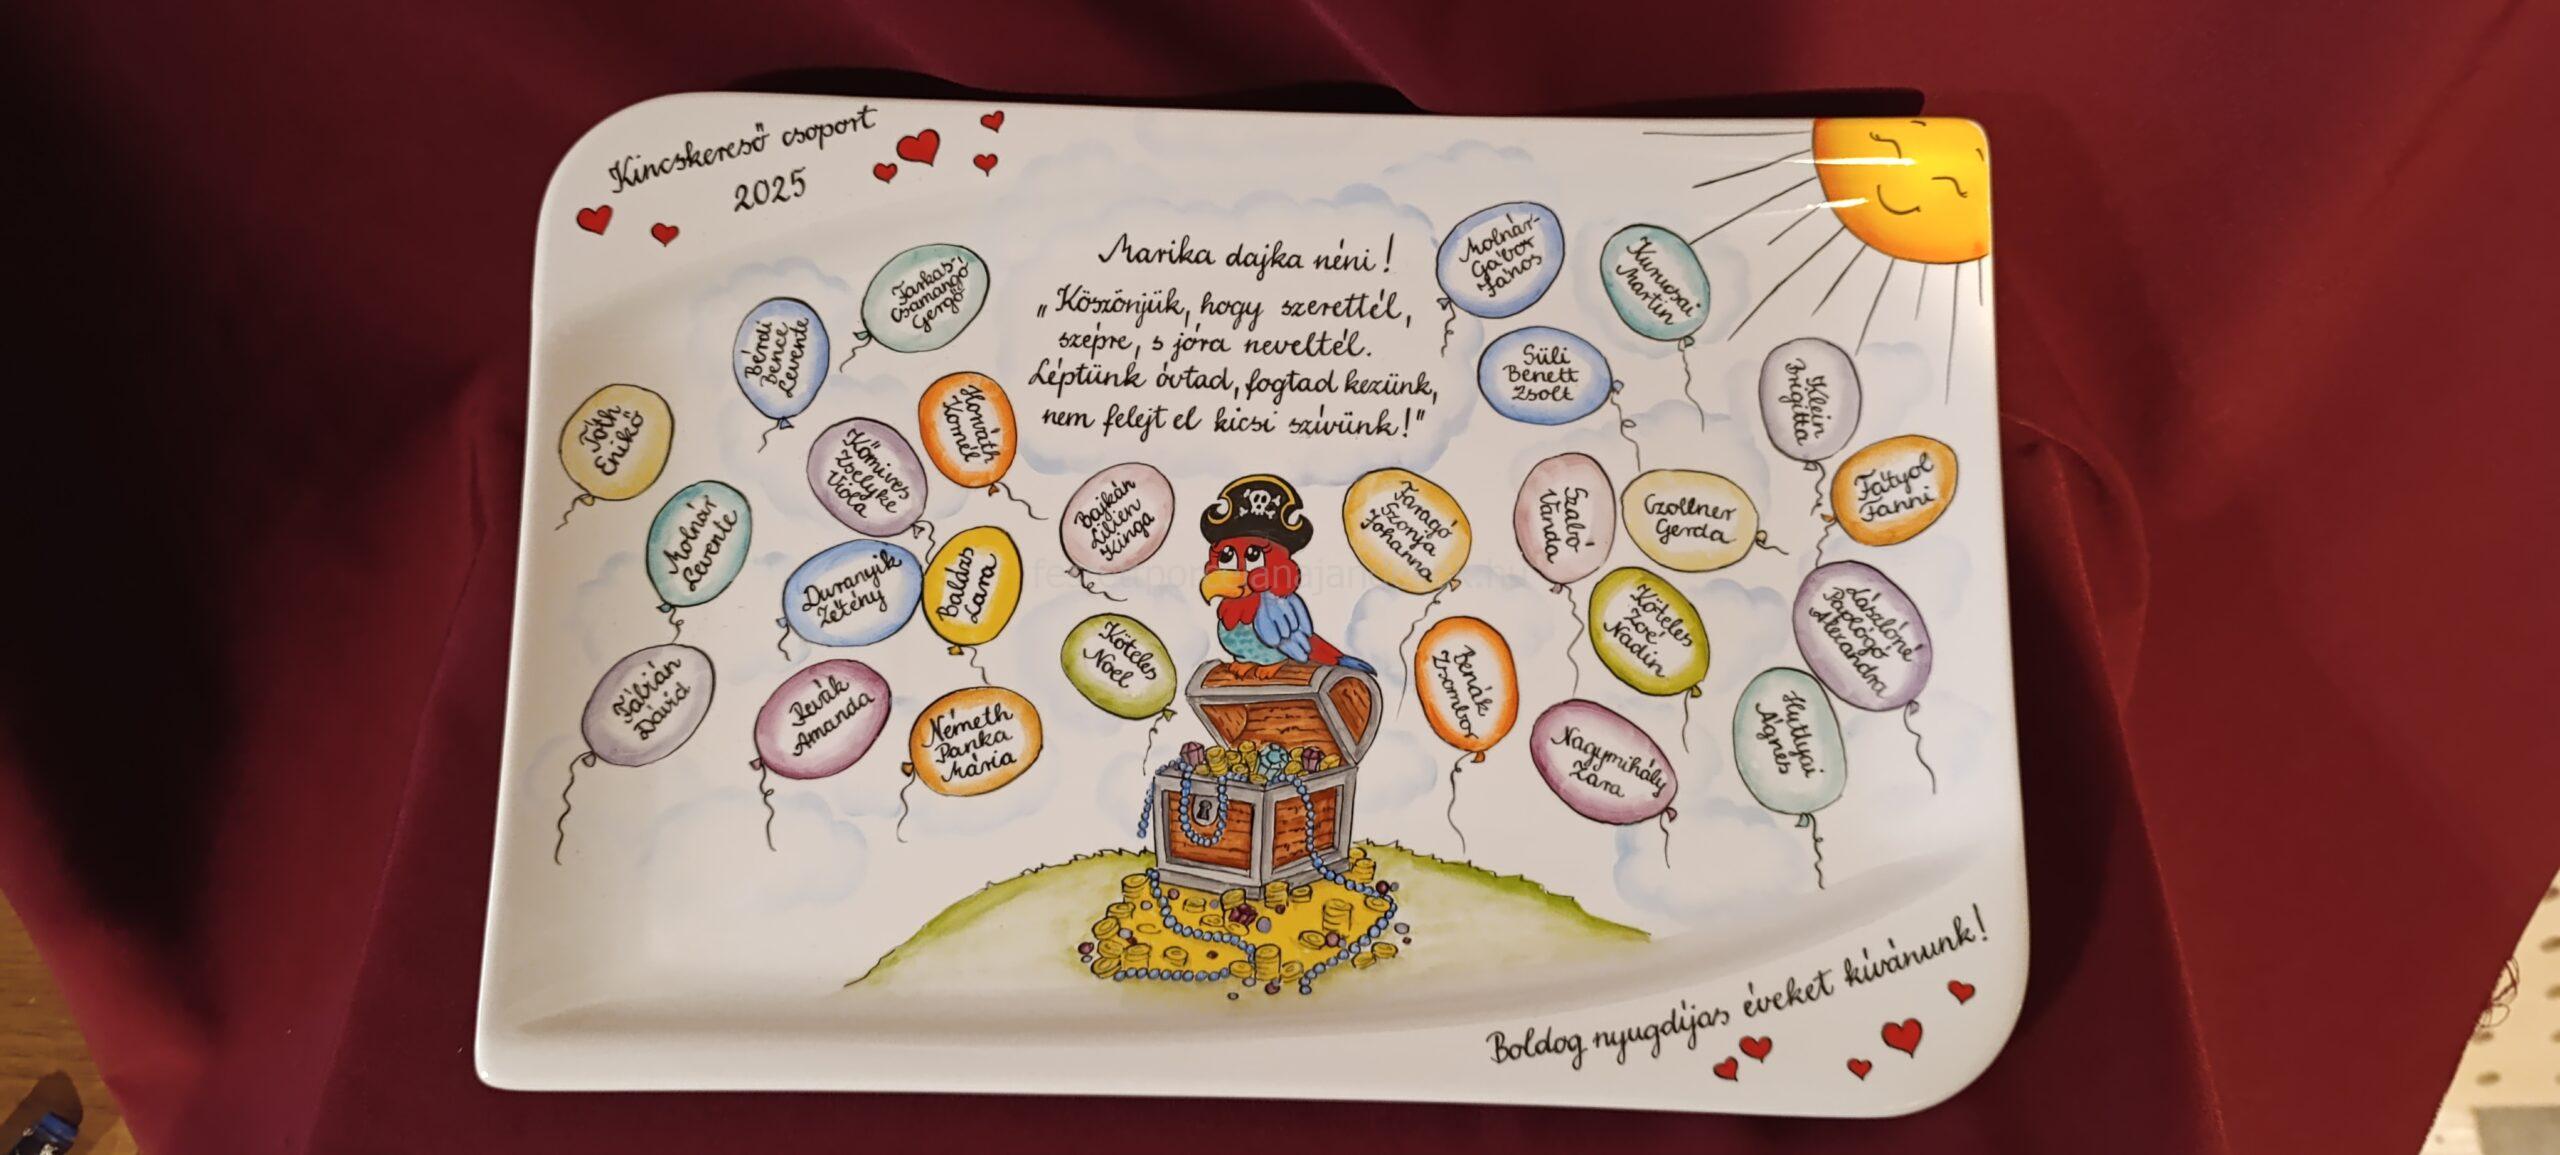 Kincskereső csoport
2025
Marika dajka néni!
„Köszönjük, hogy szerettél,
szépre, s jóra neveltél.
Léptünk óvtad, fogtad kezünk,
nem felejt el kicsi szívünk!"
Tóth
Enikő
Bérdi
Bence
Levente
Farkas-
Csamangó
Gergő
Horváth
Kornél
Kőmives
Zselyke
Viola
Molnár
Levente
Duranyik
Zétény
Balázs
Lara
Fábián
Dávid
Revák
Amanda
Németh
Panka
Mária
Bajkán
Lilien
Kinga
Köteles
Noel
Molnár-
Gábor
János
Kuncsai
Martin
Süli
Benett
Zsolt
Klein
Brigitta
Fátyol
Fanni
Faragó
Szonja
Johanna
Szabó
Vanda
Czollner
Gerda
Köteles
Zoé
Nadin
Lászlóné
Paplógó
Alexandra
Benák
Zsombor
Nagymihály
Zara
Huttyai
Ágnes
Boldog nyugdíjas éveket kívánunk!